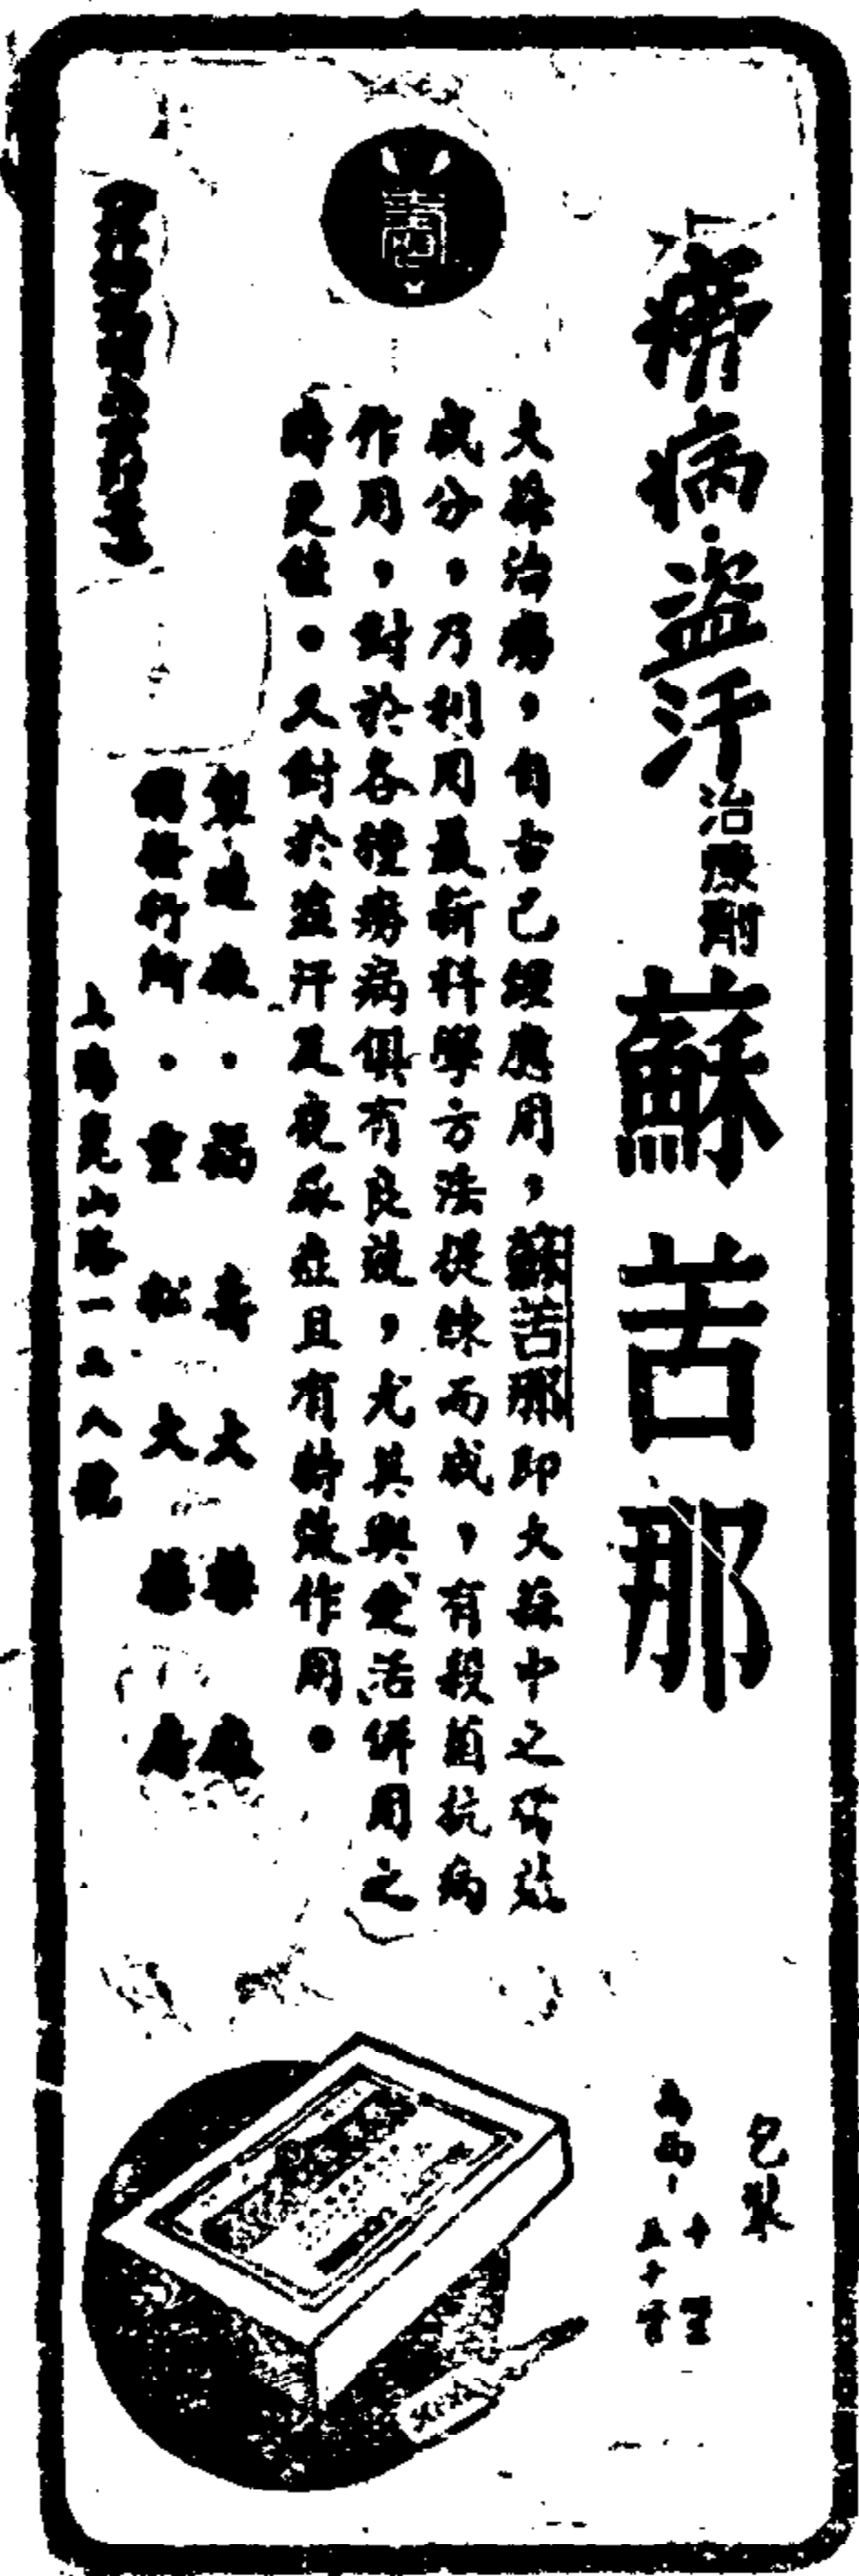 癆病·盜汗治療劑 蘇苦那
大蒜治癆，自古已經應用，蘇苦那即大蒜中之有效
成分，乃利用最新科學方法提煉而成，有殺菌抗病
作用，對於各種癆病俱有良效，尤其與 活併用之
時更佳。又對於盜汗及夜尿症且有特效作用。
製造廠·福壽大藥廠
發行所·重松大藥房
上海崑山路一 八號
包裝